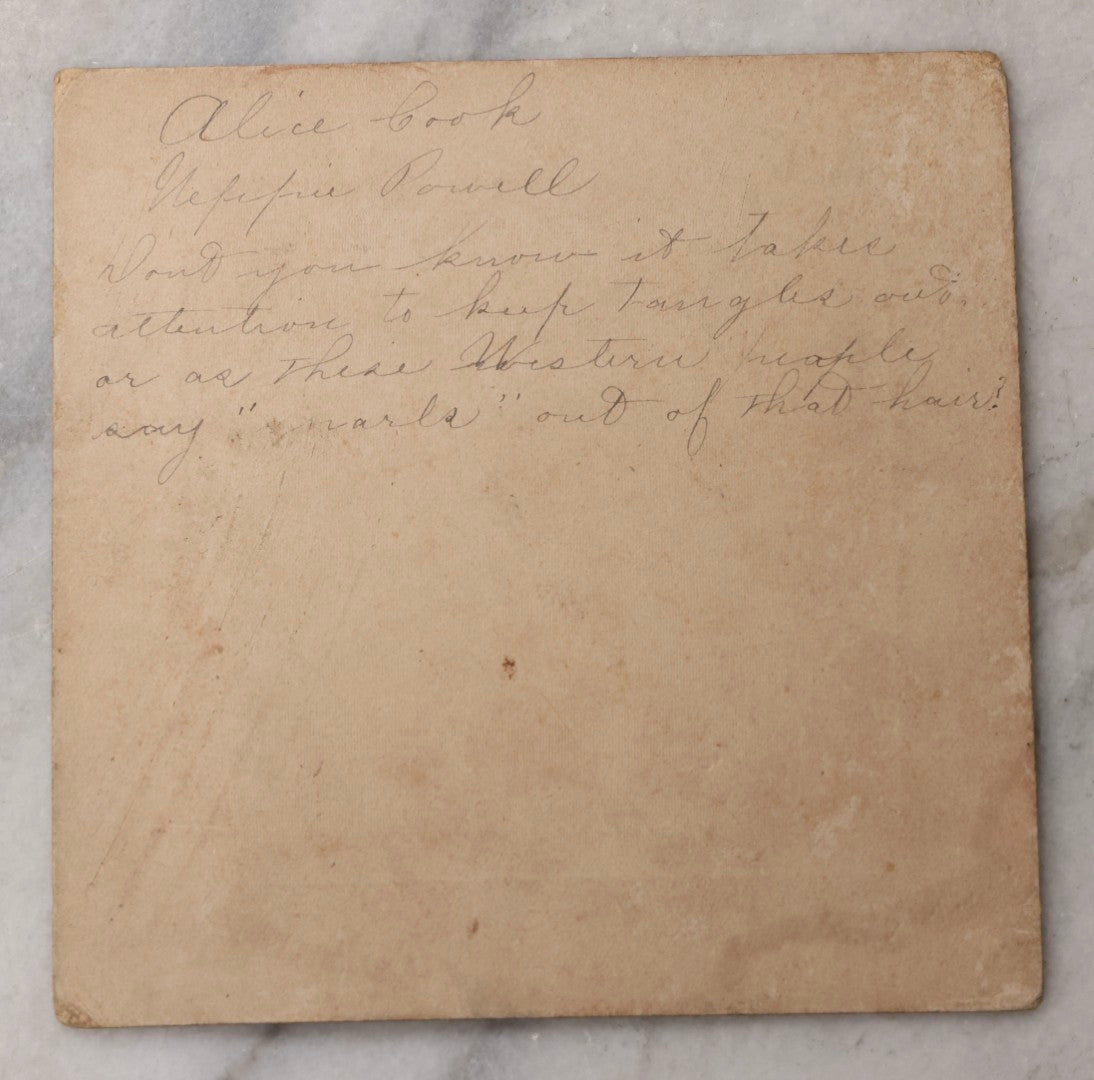 Alice Cook
Powell
Dont you know it takes
attention to keep tangles out.
or as these Western people
say "narls" out of that hair?